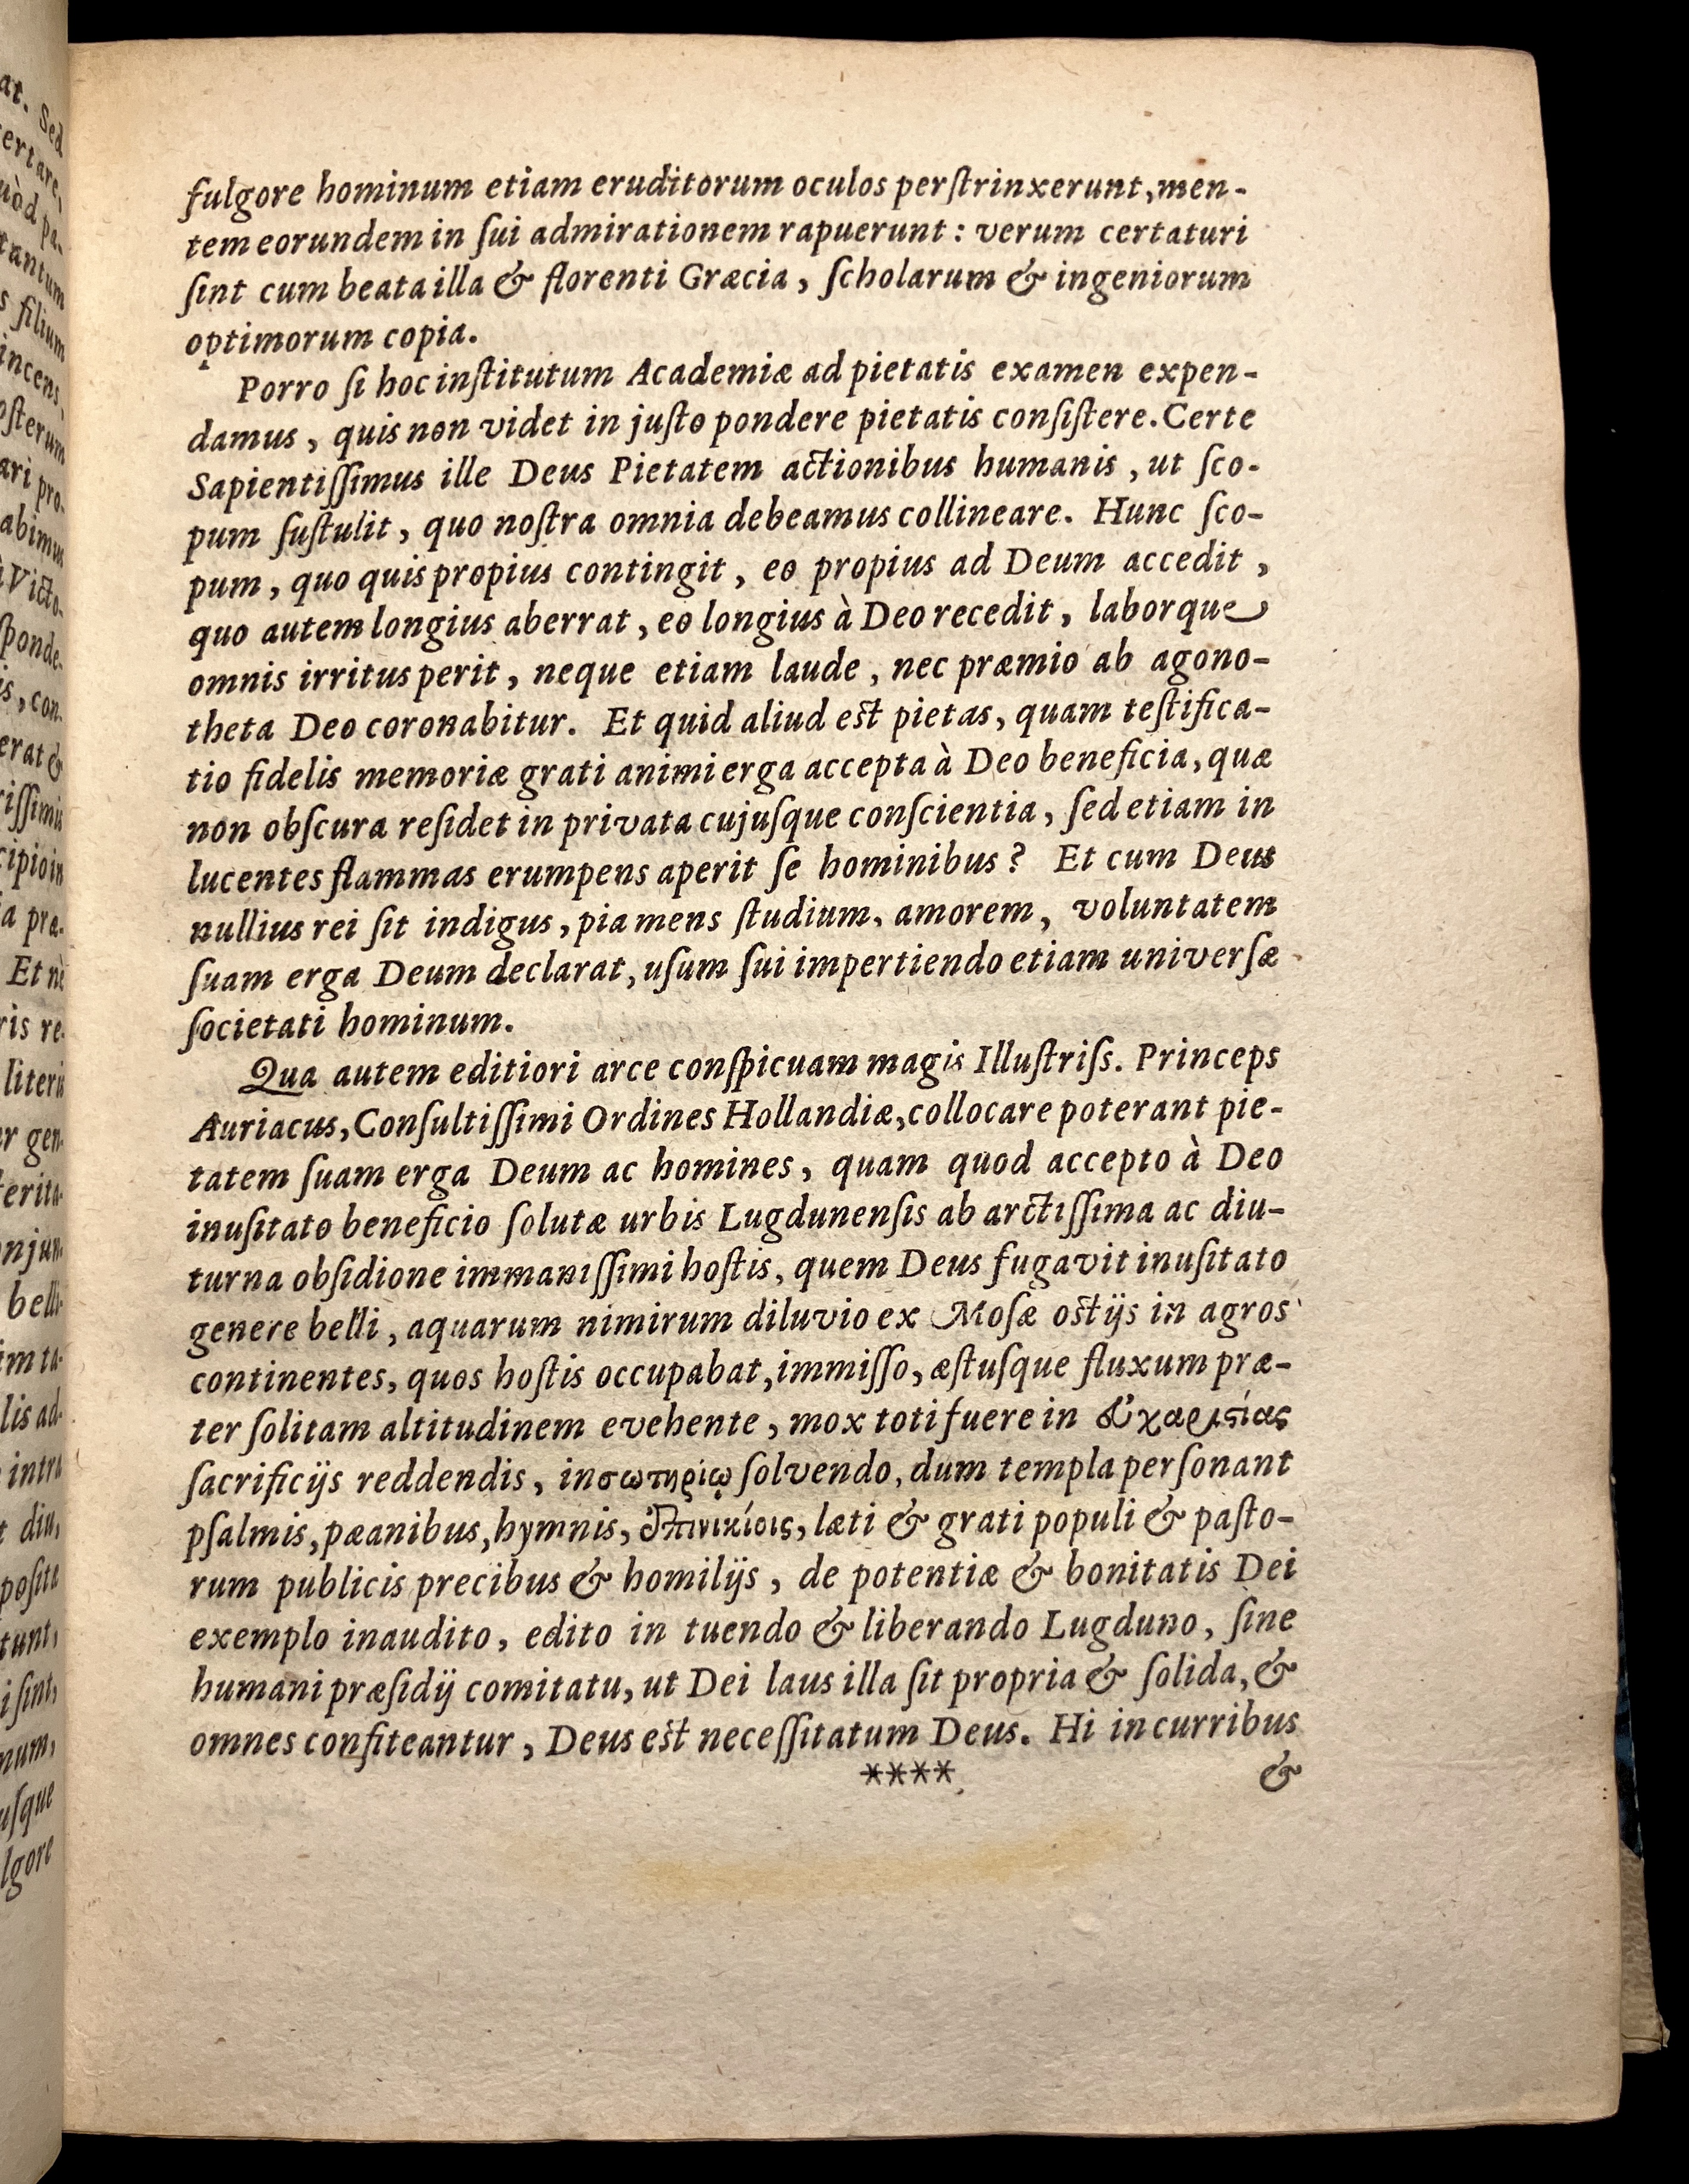 fulgore hominum etiam eruditorum oculos perſtrinxerunt, men-
tem eorundem in ſui admirationem rapuerunt: verum certaturi
ſint cum beata illa & florenti Græcia, ſcholarum & ingeniorum
optimorum copia.
Porro ſi hoc inſtitutum Academiæ ad pietatis examen expen-
damus, quis non videt in juſto pondere pietatis conſiſtere. Certe
Sapientiſſimus ille Deus Pietatem actionibus humanis, ut ſco-
pum ſuſtulit, quo noſtra omnia debeamus collineare. Hunc ſco-
pum, quo quis propius contingit, eo propius ad Deum accedit,
quo autem longius aberrat, eo longius à Deo recedit, laborque
omnis irritus perit, neque etiam laude, nec præmio ab agono-
theta Deo coronabitur. Et quid aliud est pietas, quam teſtifica-
tio fidelis memoriæ grati animi erga accepta à Deo beneficia, quæ
non obſcura reſidet in privata cujuſque conſcientia, ſed etiam in
lucentes flammas erumpens aperit ſe hominibus? Et cum Deus
nullius rei ſit indigus, pia mens ſtudium, amorem, voluntatem
ſuam erga Deum declarat, uſum ſui impertiendo etiam univerſæ
ſocietati hominum.
Qua autem editiori arce conſpicuam magis Illuſtriſſ. Princeps
Auriacus, Conſultiſſimi Ordines Hollandiæ, collocare poterant pie-
tatem ſuam erga Deum ac homines, quam quod accepto à Deo
inuſitato beneficio ſolutæ urbis Lugdunenſis ab arctiſſima ac diu-
turna obſidione immaniſſimi hoſtis, quem Deus fugavit inuſitato
genere belli, aquarum nimirum diluvio ex Moſæ ostijs in agros
continentes, quos hoſtis occupabat, immiſſo, æſtuſque fluxum præ-
ter ſolitam altitudinem evehente, mox toti fuere in εὐχαριστίας
ſacrificijs reddendis, in σωτηρίῳ ſolvendo, dum templa perſonant
pſalmis, pæanibus, hymnis, ἐπινικίοις, læti & grati populi & paſto-
rum publicis precibus & homilijs, de potentiæ & bonitatis Dei
exemplo inaudito, edito in tuendo & liberando Lugduno, ſine
humani præſidij comitatu, ut Dei laus illa ſit propria & ſolida, &
omnes confiteantur, Deus est neceſſitatum Deus. Hi in curribus
****
&